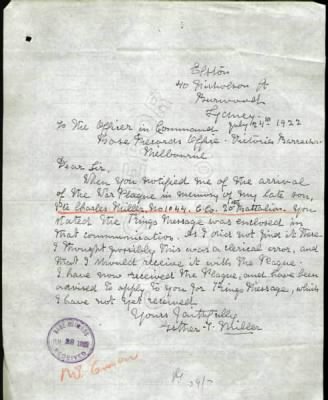 Clifton
40 Nicholson St
Burwood
Sydney
July 24th 1922
To the Officer in Command
Base Records Office - Victoria Barracks
Melbourne
Dear Sir,
When you notified me of the arrival
of the War Plaque in memory of my late son,
Pte Charles Miller No 1044. C. Co. 20th Battalion. You
stated the Kings Message was enclosed in
that communication. As I did not find it there
I thought possibly, this was a clerical error, and
that I should receive it with the Plaque.
I have now received the Plaque, and have been
advised to apply to you for Kings Message, which
I have not yet received
Yours faithfully
Miller
RECEIVED